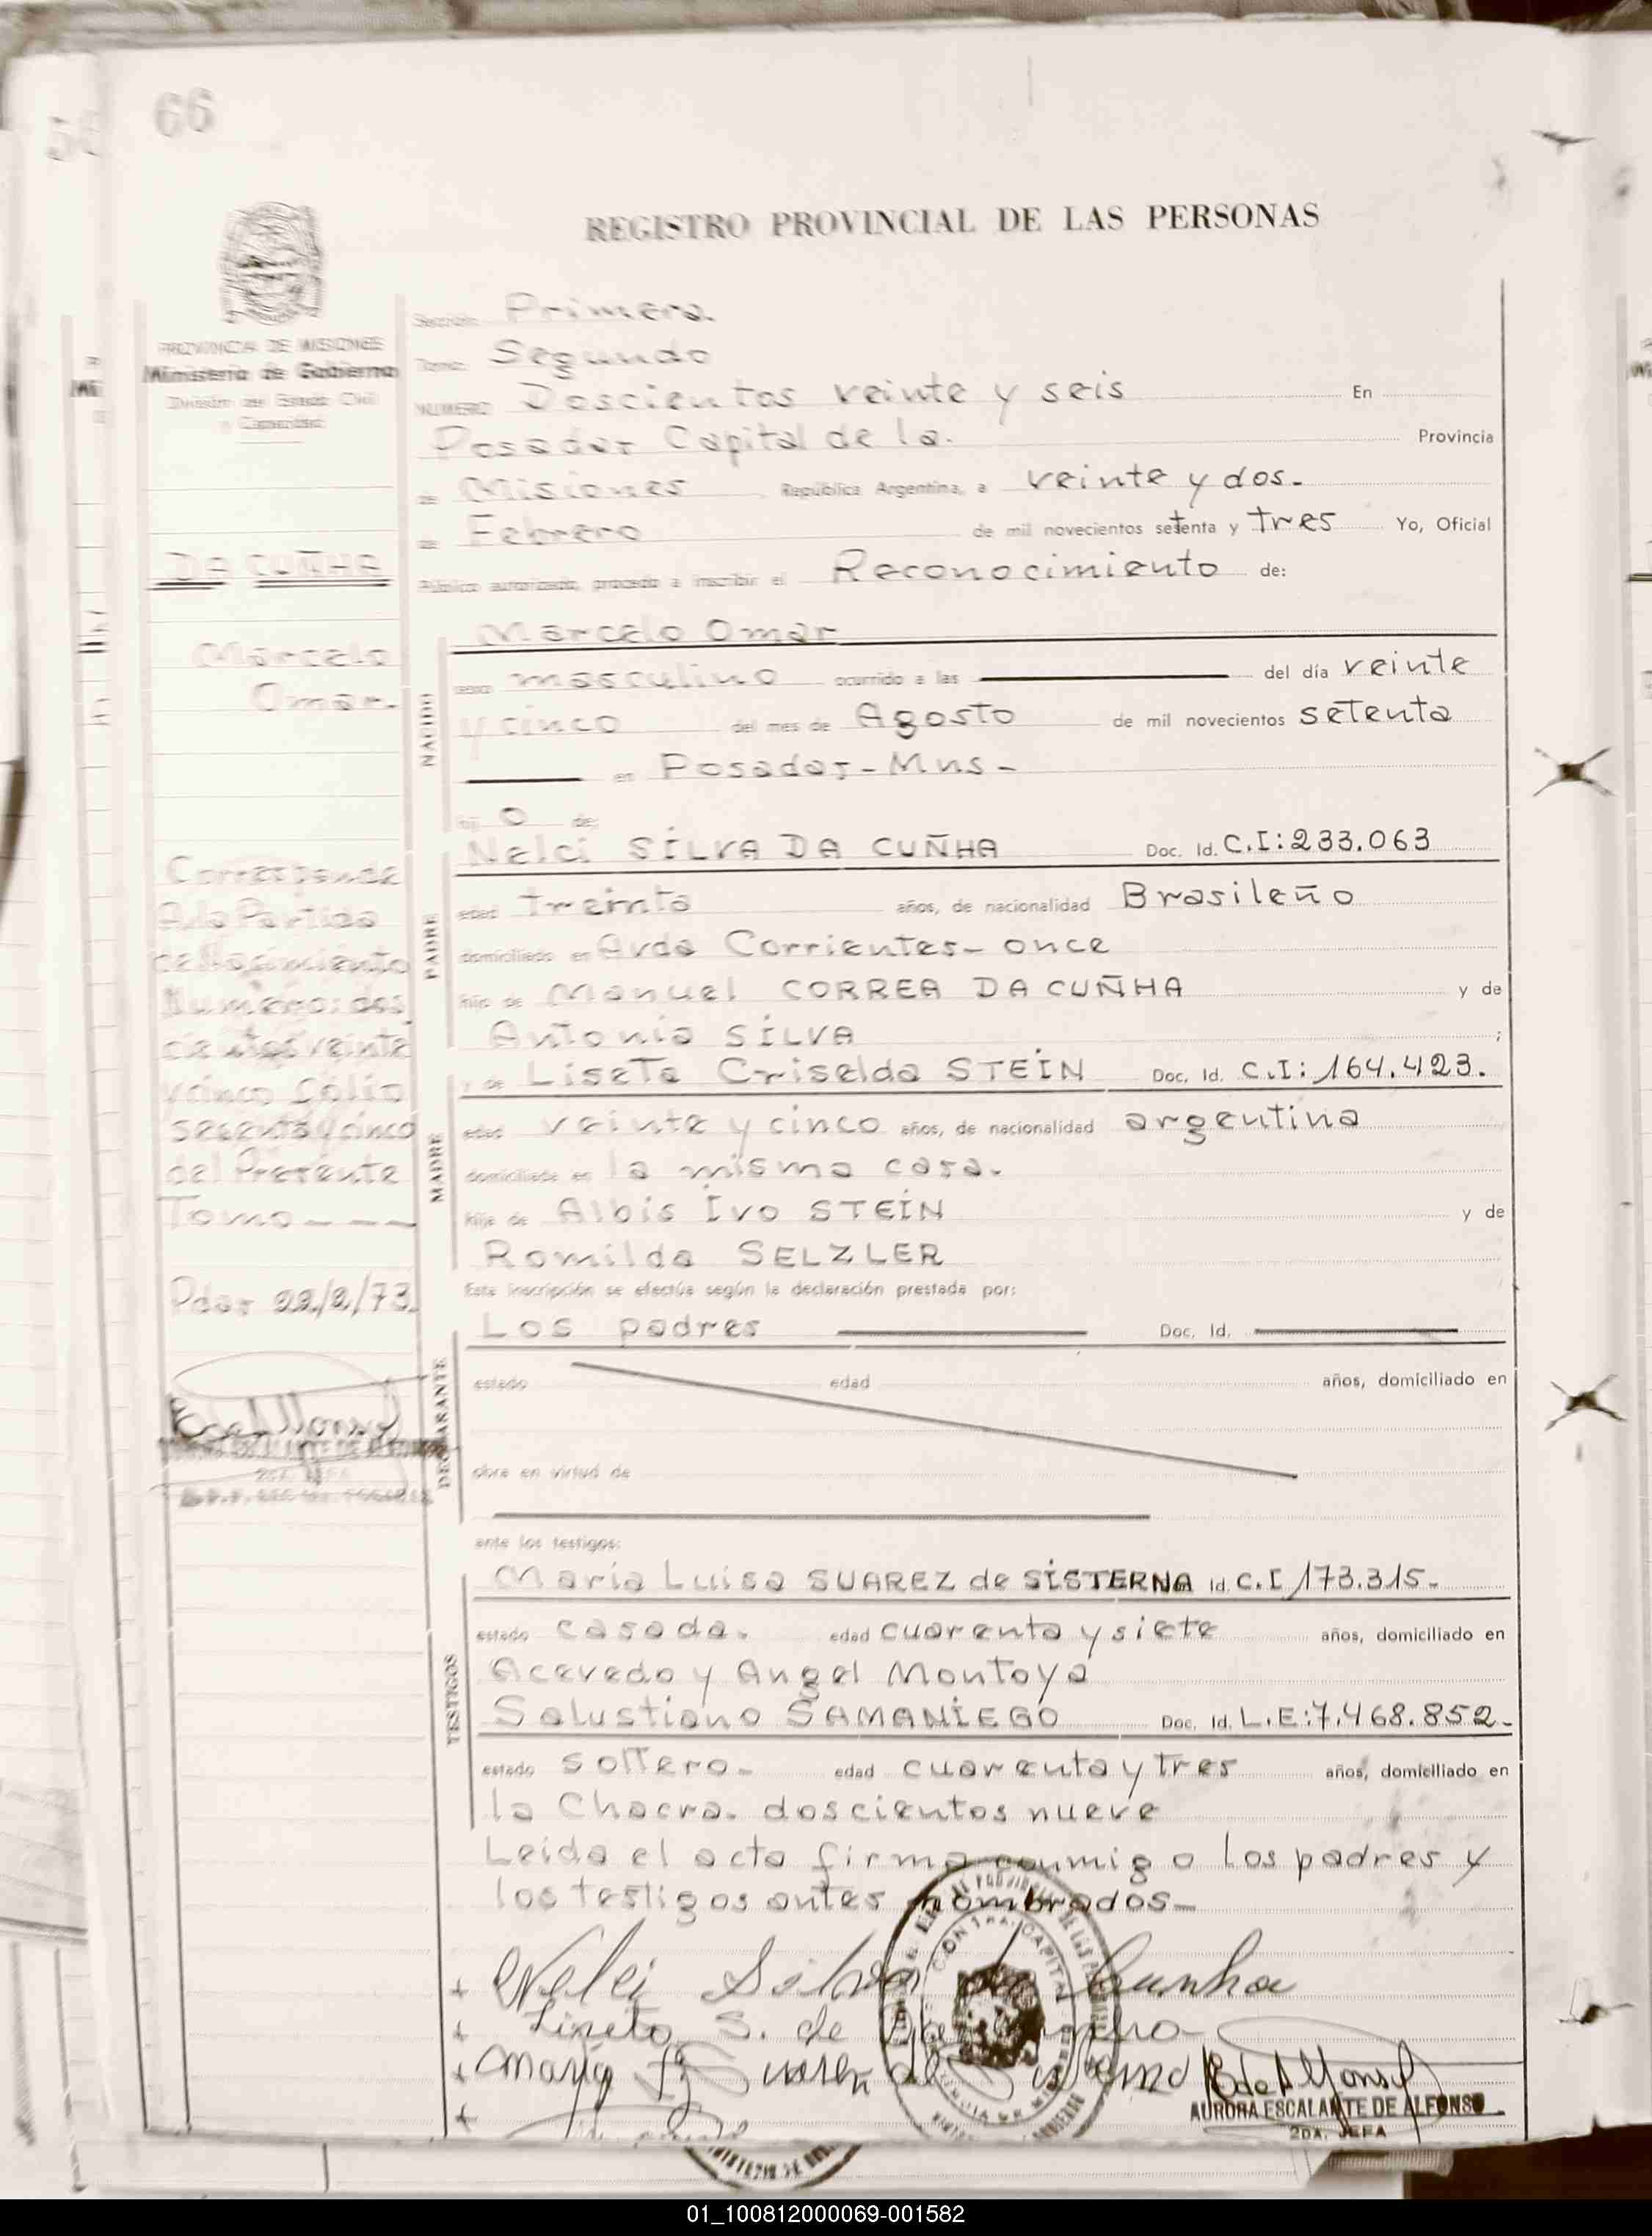 66
REGISTRO PROVINCIAL DE LAS PERSONAS
PROVINCIA DE MISIONES
Ministerio de Gobierno
División de Estado Civil
y Capacidad
Sección Primera.
Tomo: Segundo
NUMERO Doscientos veinte y seis En
Posadas Capital de la. Provincia
de Misiones República Argentina, a veinte y dos.
de Febrero de mil novecientos setenta y tres Yo, Oficial
Público autorizado, procedo a inscribir el Reconocimiento de:
DA CUÑHA
Marcelo
Omar.
NACIDO
Marcelo Omar
sexo masculino ocurrido a las del día veinte
y cinco del mes de Agosto de mil novecientos setenta
en Posadas - Mns -
hij o de:
Corresponde
A la Partida
de Nacimiento
Numero: dos
cientos veinte
y cinco folio
sesenta y cinco
del Presente
Tomo - - -
Pdas 22/2/73.
PADRE
Nelci SILVA DA CUÑHA Doc. Id. C.I: 233.063
edad treinta años, de nacionalidad Brasileño
domiciliado en Avda Corrientes - once
hijo de Manuel CORREA DA CUÑHA y de
Antonia SILVA ;
MADRE
y de Liseta Criselda STEIN Doc. Id. C.I: 164.423.
edad veinte y cinco años, de nacionalidad argentina
domiciliada en la misma casa.
hija de Albis Ivo STEIN y de
Romilda SELZLER
Esta inscripción se efectúa según la declaración prestada por:
DECLARANTE
Los padres Doc. Id.
estado edad años, domiciliado en
obra en virtud de
ante los testigos:
TESTIGOS
Maria Luisa SUAREZ de SISTERNA Id. C.I 173.315.
estado casada. edad cuarenta y siete años, domiciliado en
Acevedo y Angel Montoya
Salustiano SAMANIEGO Doc. Id. L.E: 7.468.852.
estado soltero. edad cuarenta y tres años, domiciliado en
la Chacra. doscientos nueve
Leida el acta firma conmigo los padres y
los testigos antes nombrados -
Nelci Silva da Cunha
Liseta S. de
AURORA ESCALANTE DE ALFONSO
2DA. JEFA
01_100812000069-001582